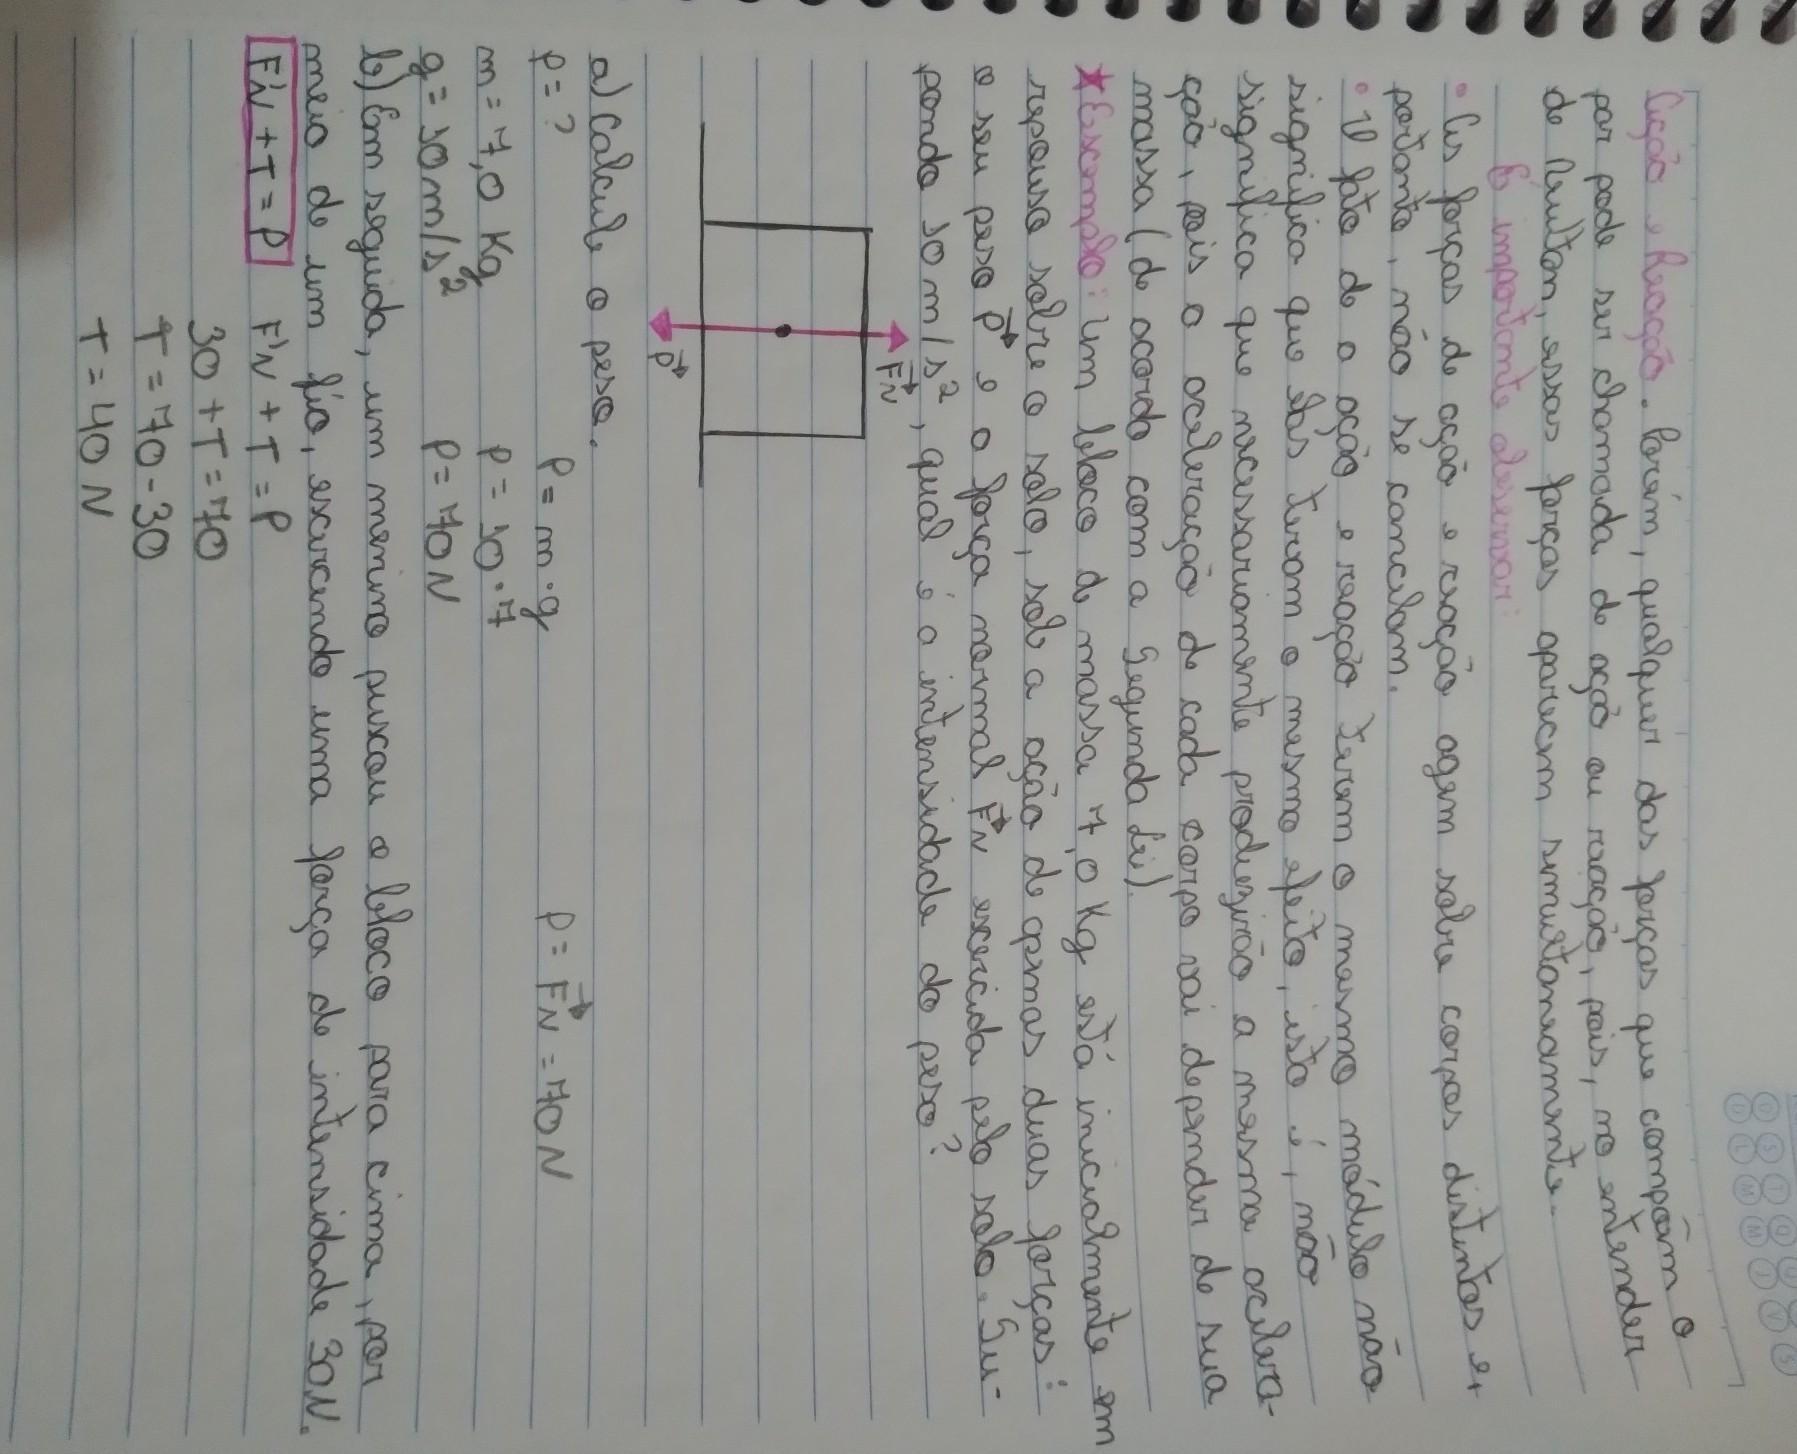 Ação e Reação. Porém, qualquer das forças que compõem o
par pode ser chamada de ação ou reação, pois, no entender
de Newton, essas forças aparecem simultaneamente.
É importante observar:
• As forças de ação e reação agem sobre corpos distintos e,
portanto, não se cancelam.
• O fato de a ação e reação terem o mesmo módulo não
significa que elas teram o mesmo efeito, isto é, não
significa que necessariamente produzirão a mesma acelera-
ção, pois a aceleração de cada corpo vai depender de sua
massa (de acordo com a Segunda Lei).
★ Exemplo: Um bloco de massa 7,0 Kg está inicialmente em
repouso sobre o solo, sob a ação de apenas duas forças:
o seu peso P e a força normal FN exercida pelo solo. Su-
pondo 10 m/s², qual é a intensidade do peso?
FN
P
a) Calcule o peso.
P = ? P = m · g P = FN = 70 N
m = 7,0 Kg P = 10 · 7
g = 10 m/s² P = 70 N
b) Em seguida, um menino puxou o bloco para cima, por
meio de um fio, exercendo uma força de intensidade 30 N.
F'N + T = P F'N + T = P
30 + T = 70
T = 70 - 30
T = 40 N